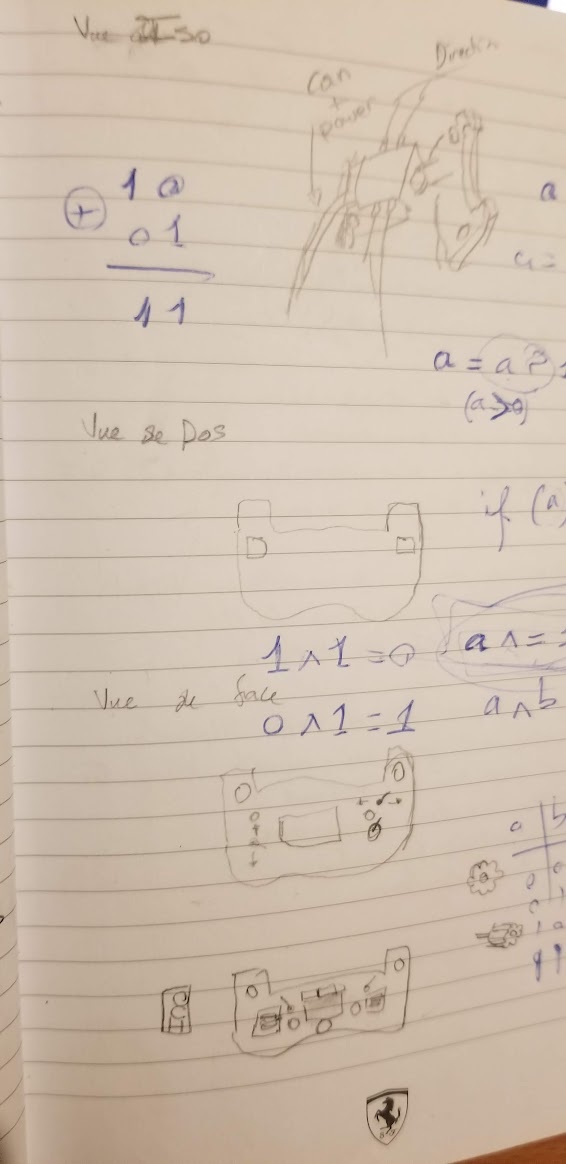 Vue ISO
Can
+
power
Direction
1 0
+ 0 1
1 1
a
a =
a = a ? 1
(a>0)
Vue de Dos
if (a)
1 ∧ 1 = 0
a ∧ =
Vue de face
0 ∧ 1 = 1
a ∧ b
a b
0 0
0 1
1 0
1 1